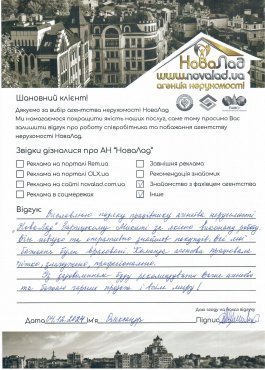 НоваЛад
www.novalad.ua
агенція нерухомості
Шановний клієнт!
Дякуємо за вибір агентства нерухомості НоваЛад
Ми намагаємося покращити якість наших послуг, саме тому просимо Вас
залишити відгук про роботу співробітника та побажання агентству
нерухомості НоваЛад.
Звідки дізналися про АН "НоваЛад"
Реклама на порталі Rem.ua
Зовнішня реклама
Реклама на порталі OLX.ua
Рекомендація знайомих
Реклама на сайті novalad.com.ua
Знайомство з фахівцем агентства
Реклама в соцмережах
Інше
Відгук:
Висловлюю подяку працівнику агенції нерухомості
"НоваЛад" за якісно виконану роботу.
Він швидко та оперативно знайшов покупців, всі мої
побажання були враховані. Команда агенції працювала
чітко, злагоджено, професійно.
Із задоволенням буду рекомендувати Вашу агенцію
та бажаю гарних продажів і всім миру!
Дата 14.12.2024 Ім'я Підпис